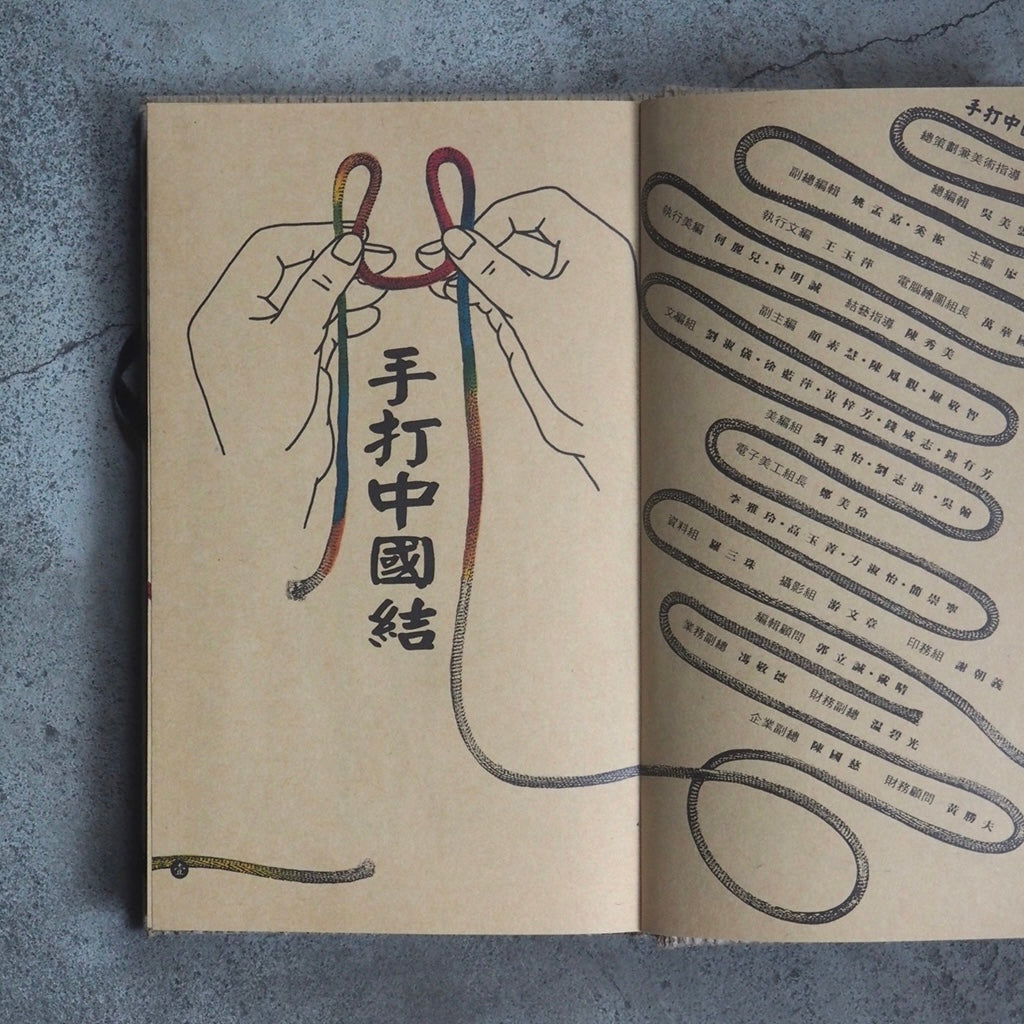 手打中國結
手打中
總策劃兼美術指導
總編輯 吳美雲
副總編輯 姚孟嘉・奚淞 主編
執行文編 王玉萍 電腦繪圖組長 萬華國
執行美編 何麗兒・曾明誠 結藝指導 陳秀美
副主編 顏素慧・陳鳳觀・羅敬智
文編組 劉淑儀・徐藍萍・黃梓芳・錢威志・鍾有芳
美編組 劉秉怡・劉志洪・吳翰
電子美工組長 鄭美玲
李雅玲・高玉菁・方淑怡・簡崇寧
資料組 羅三珠 攝影組 游文章 印務組 謝朝義
編輯顧問 郭立誠・戴晴
業務副總 馮敬德 財務副總 溫碧光
企業副總 陳國慈 財務顧問 黃勝夫